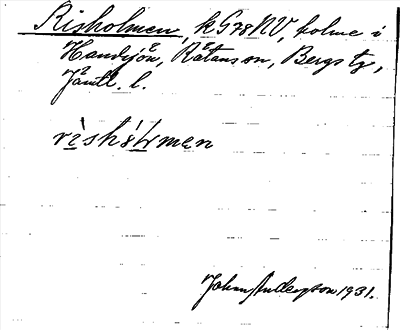 Risholmen, kG78NV, holme i
Handsjön, Rätans sn, Bergs tg,
Jämtl. l.
rìshó́lmen
Johan Anderzon 1931.